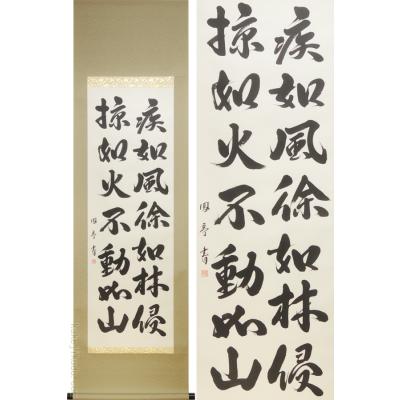 疾如風徐如林侵
掠如火不動如山
疾如風徐如林侵
掠如火不動如山